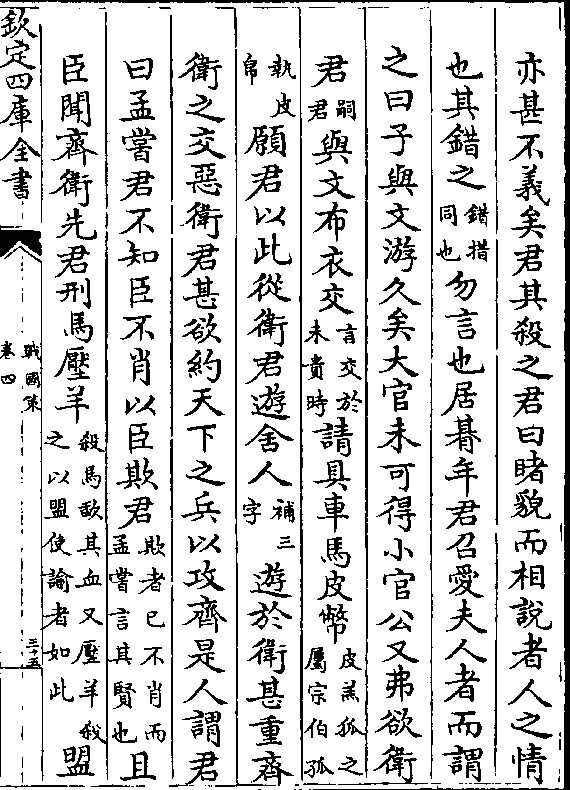 亦甚不義矣君其殺之君曰睹貌而相說者人之情
也其錯之錯措同也勿言也居朞年君召愛夫人者而謂
之曰子與文游久矣大官未可得小官公又弗欲衛
君嗣君與文布衣交言交於未貴時請具車馬皮幣皮羔狐之屬宗伯孤
執皮帛願君以此從衛君遊舍人補三字遊於衛甚重齊
衛之交惡衛君甚欲約天下之兵以攻齊是人謂君
曰孟嘗君不知臣不肖以臣欺君欺者已不肖而孟嘗言其賢也且
臣聞齊衛先君刑馬壓羊殺馬歃其血又壓羊殺之以盟使諭者如此盟
欽定四庫全書
戰國策
卷四
三十五